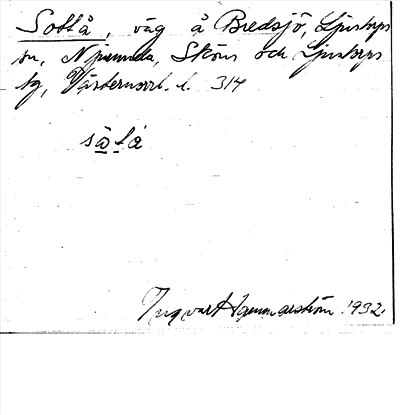 Sottå, väg å Bredsjö, Ljustorps
sn, Njurunda, Sköns och Ljustorps
tg, Västernorrl. l. 314
såtå
Ingvar Hammarström 1932.